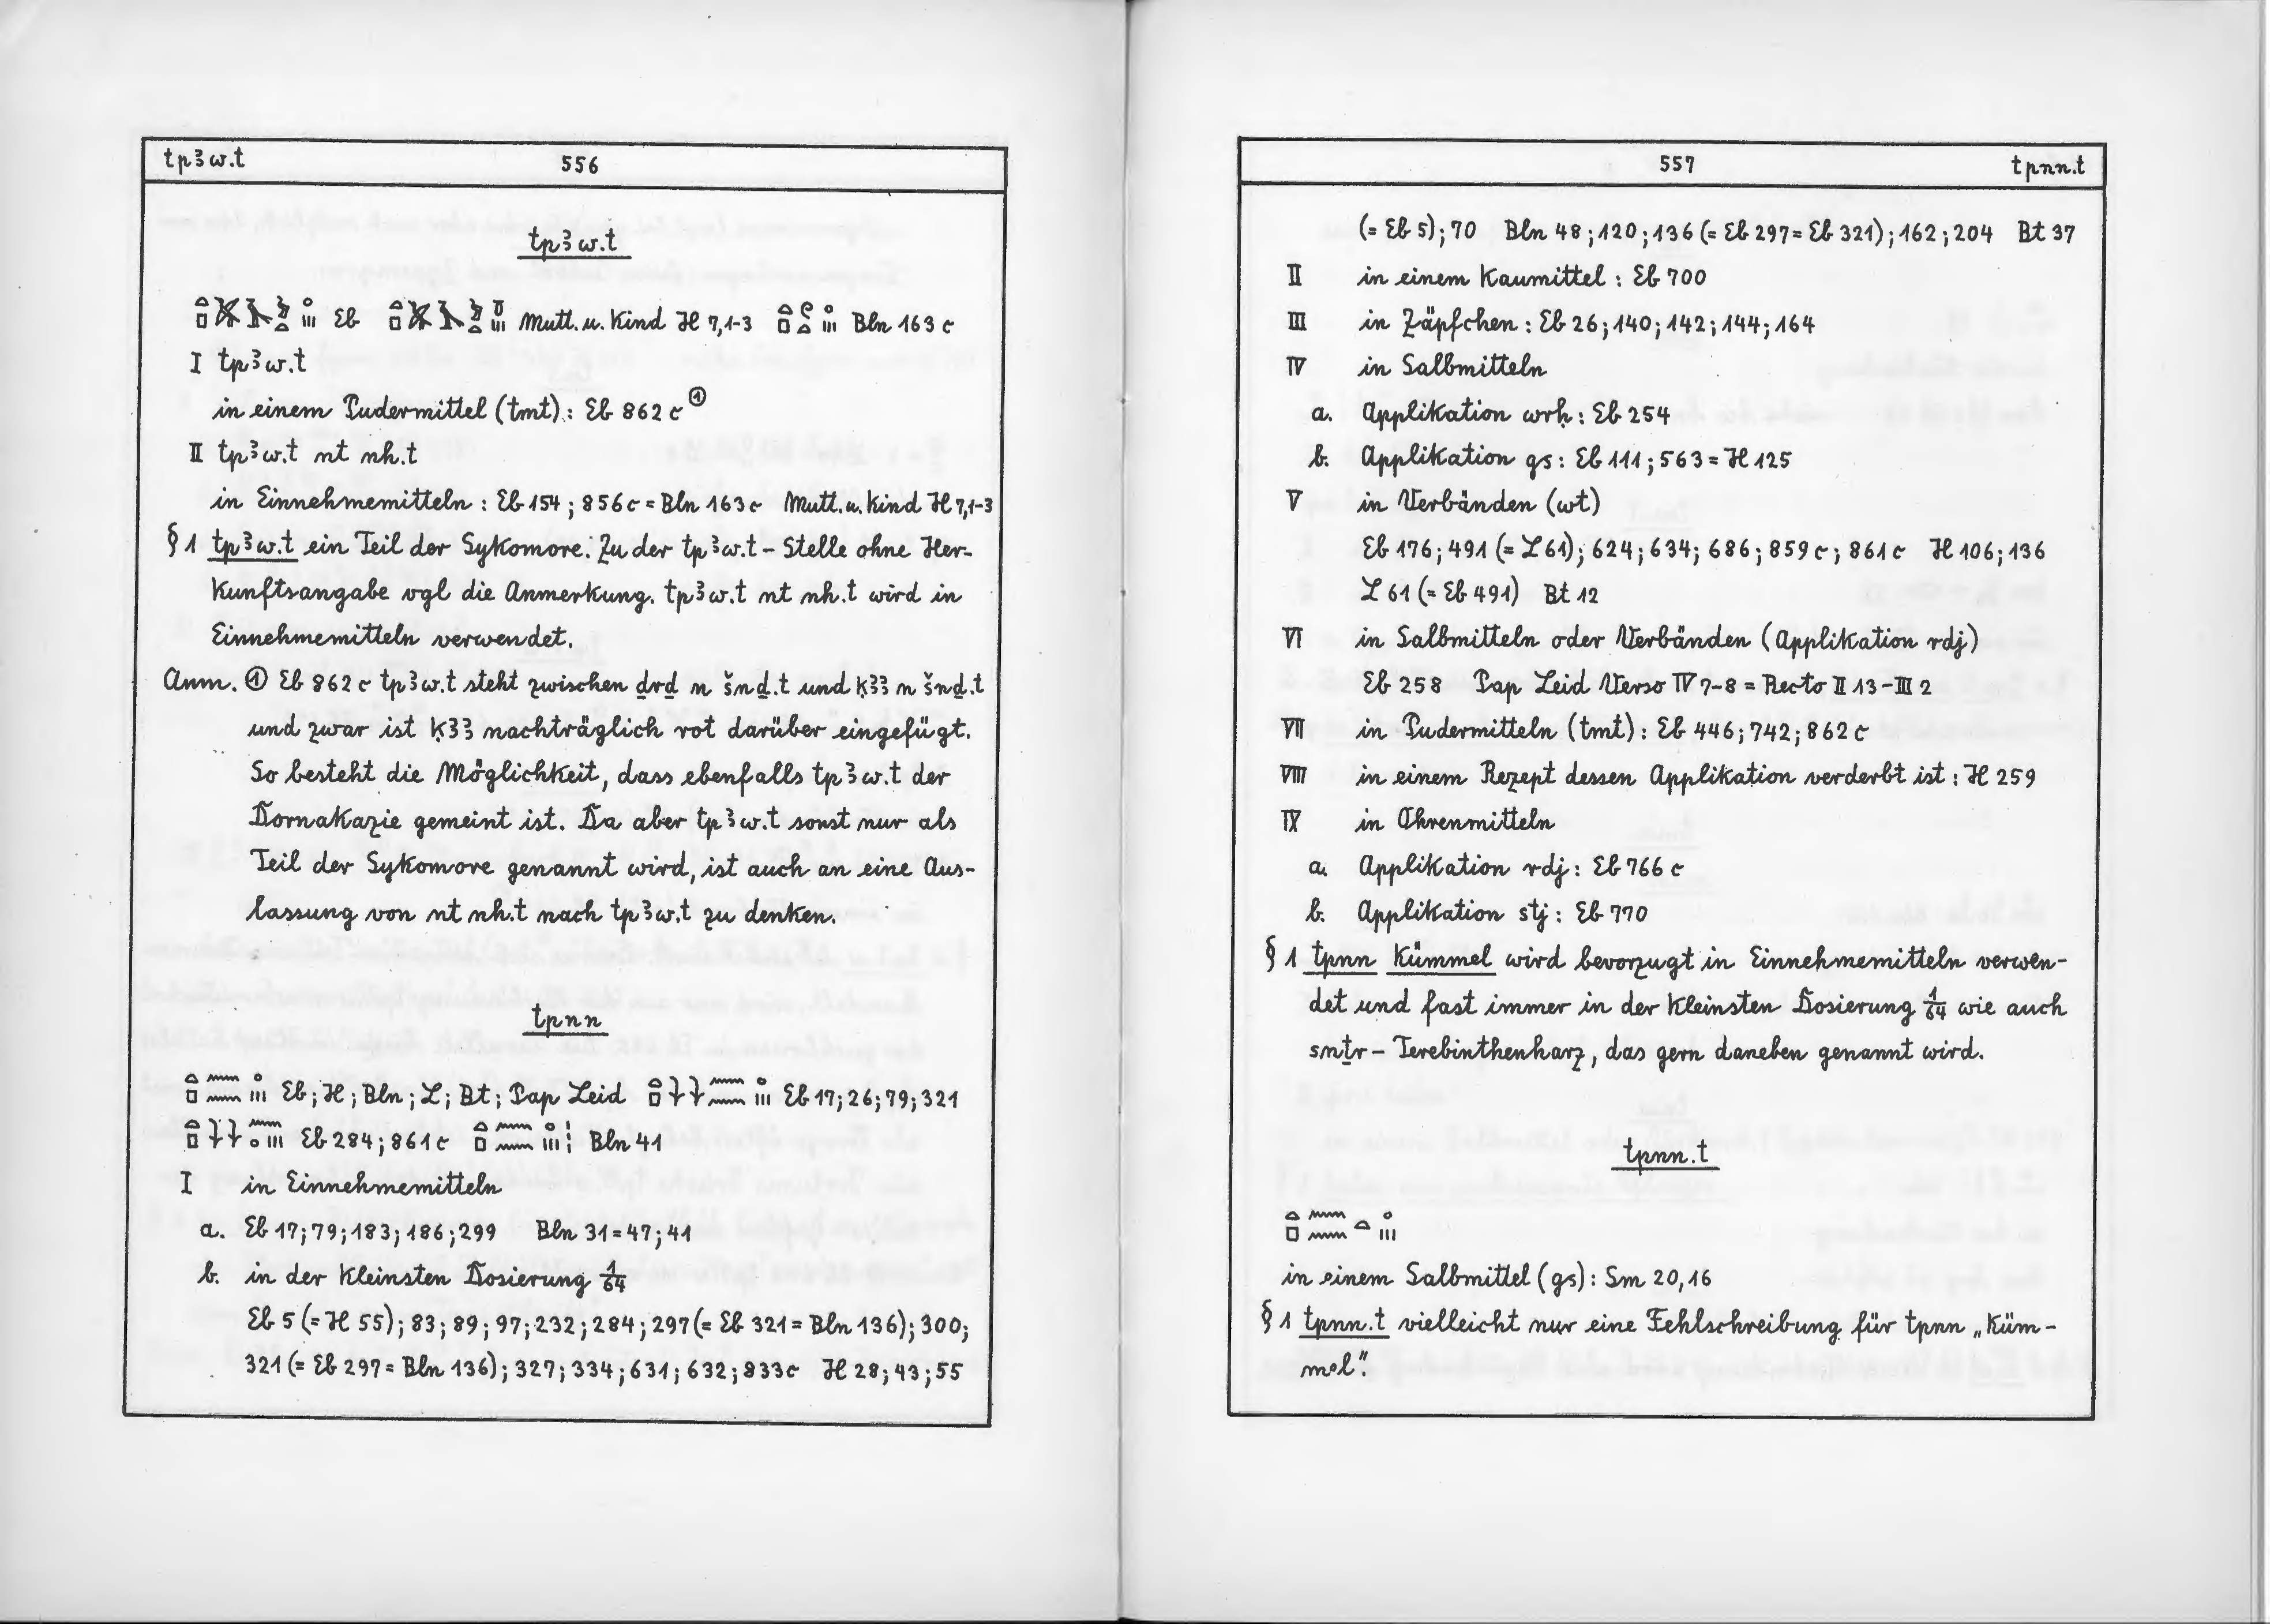 tpꜣw.t 556
tpꜣw.t
Eb Mutt. u. Kind H 7,1-3 Bln 163 c
I tpꜣw.t
in einem Pudermittel (tmt): Eb 862 c ①
II tpꜣw.t nt nh.t
in Einnehmemitteln: Eb 154; 856 c = Bln 163 c Mutt. u. Kind H 7,1-3
§ 1 tpꜣw.t ein Teil der Sykomore. Zu der tpꜣw.t - Stelle ohne Her-
kunftsangabe vgl die Anmerkung. tpꜣw.t nt nh.t wird in
Einnehmemitteln verwendet.
Anm. ① Eb 862 c tpꜣw.t steht zwischen ḏrḏ n šnḏ.t und ḳꜣꜣ n šnḏ.t
und zwar ist ḳꜣꜣ nachträglich rot darüber eingefügt.
So besteht die Möglichkeit, dass ebenfalls tpꜣw.t der
Dornakazie gemeint ist. Da aber tpꜣw.t sonst nur als
Teil der Sykomore genannt wird, ist auch an eine Aus-
lassung von nt nh.t nach tpꜣw.t zu denken.
tpnn
Eb; H; Bln; L; Bt; Pap Leid Eb 17; 26; 79; 321
Eb 284; 861 c Bln 41
I in Einnehmemitteln
a. Eb 17; 79; 183; 186; 299 Bln 31 = 47; 41
b. in der kleinsten Dosierung 1/64
Eb 5 (= H 55); 83; 89; 97; 232; 284; 297 (= Eb 321 = Bln 136); 300;
321 (= Eb 297 = Bln 136); 327; 334; 631; 632; 833 c H 28; 43; 55
557 tpnn.t
(= Eb 5); 70 Bln 48; 120; 136 (= Eb 297 = Eb 321); 162; 204 Bt 37
II in einem Kaumittel: Eb 700
III in Zäpfchen: Eb 26; 140; 142; 144; 164
IV in Salbmitteln
a. Applikation wrḥ: Eb 254
b. Applikation gs: Eb 111; 563 = H 125
V in Verbänden (wt)
Eb 176; 491 (= L 61); 624; 634; 686; 859 c; 861 c H 106; 136
L 61 (= Eb 491) Bt 12
VI in Salbmitteln oder Verbänden (Applikation rdj)
Eb 258 Pap Leid Verso IV 7-8 = Recto II 13 - III 2
VII in Pudermitteln (tmt): Eb 446; 742; 862 c
VIII in einem Rezept dessen Applikation verderbt ist: H 259
IX in Ohrenmitteln
a. Applikation rdj: Eb 766 c
b. Applikation stj: Eb 770
§ 1 tpnn Kümmel wird bevorzugt in Einnehmemitteln verwen-
det und fast immer in der kleinsten Dosierung 1/64 wie auch
snṯr - Terebinthenharz, das gern daneben genannt wird.
tpnn.t
in einem Salbmittel (gs): Sm 20,16
§ 1 tpnn.t vielleicht nur eine Fehlschreibung für tpnn „Küm-
mel".